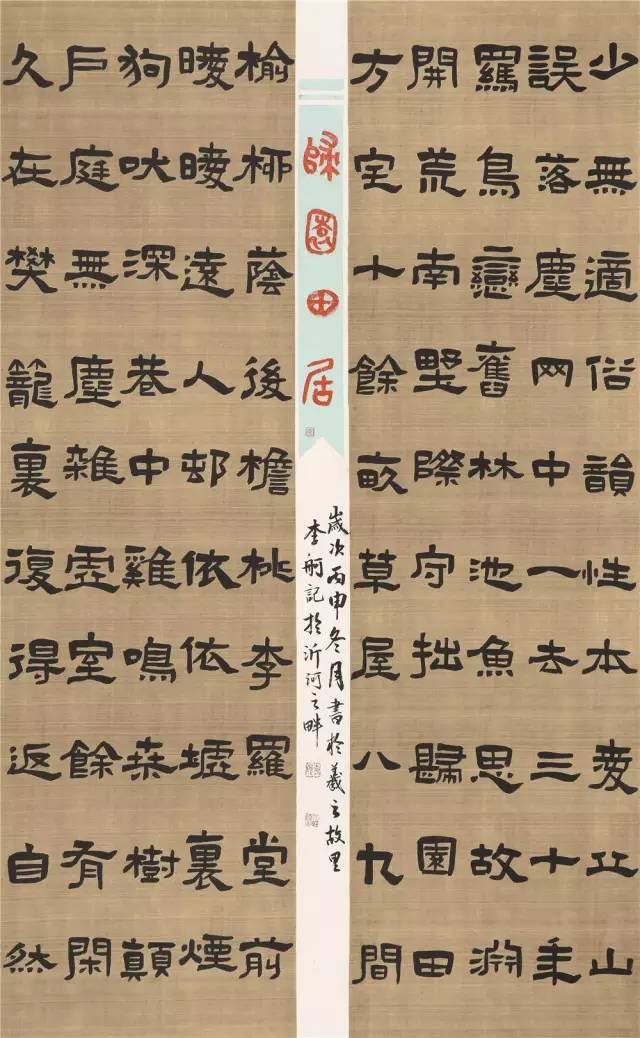 少無適俗韻性本愛丘山
誤落塵网中一去三十年
羈鳥戀舊林池魚思故淵
開荒南野際守拙歸園田
方宅十餘畝草屋八九間
歸園田居
歲次丙申冬月書於羲之故里
李舸記於沂河之畔
榆柳蔭後檐桃李羅堂前
曖曖遠人邨依依墟裏煙
狗吠深巷中雞鳴桑樹顛
戶庭無塵雜虛室餘有閑
久在樊籠裏復得返自然